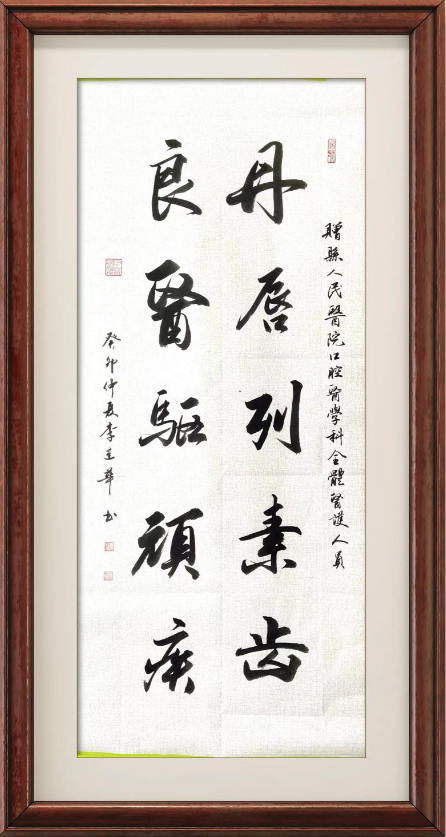 贈縣人民醫院口腔醫學科全體醫護人員
丹唇列素齿
良醫驅頑疾
癸卯仲夏李孟華书